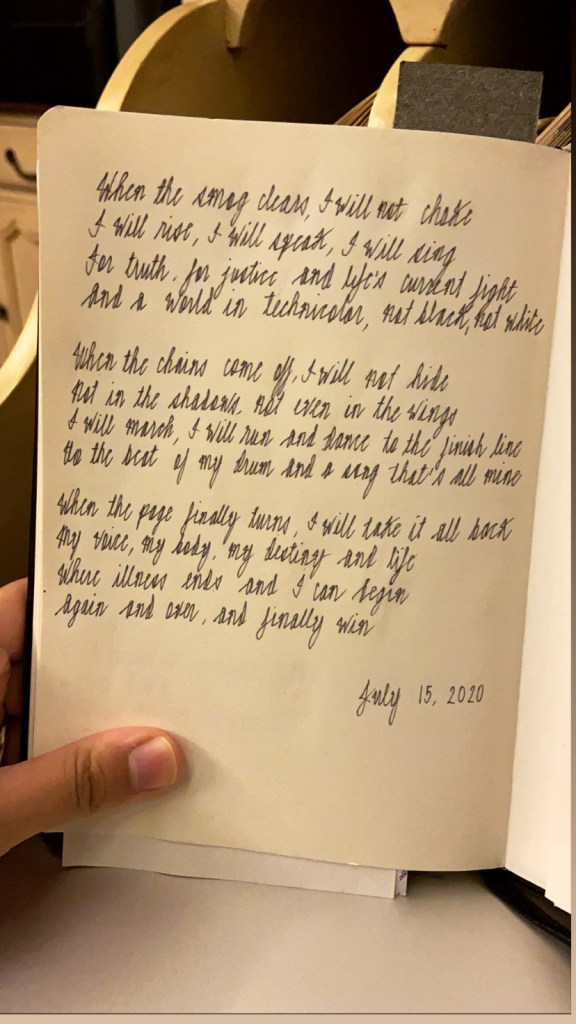 When the smog clears, I will not choke
I will rise, I will speak, I will sing
For truth, for justice and life's current fight
and a world in technicolor, not black, not white
When the chains come off, I will not hide
Not in the shadows, not even in the wings
I will march, I will run and dance to the finish line
to the beat of my drum and a song that's all mine
When the page finally turns, I will take it all back
My voice, my body, my destiny and life
Where illness ends and I can begin
again and over, and finally win
July 15, 2020